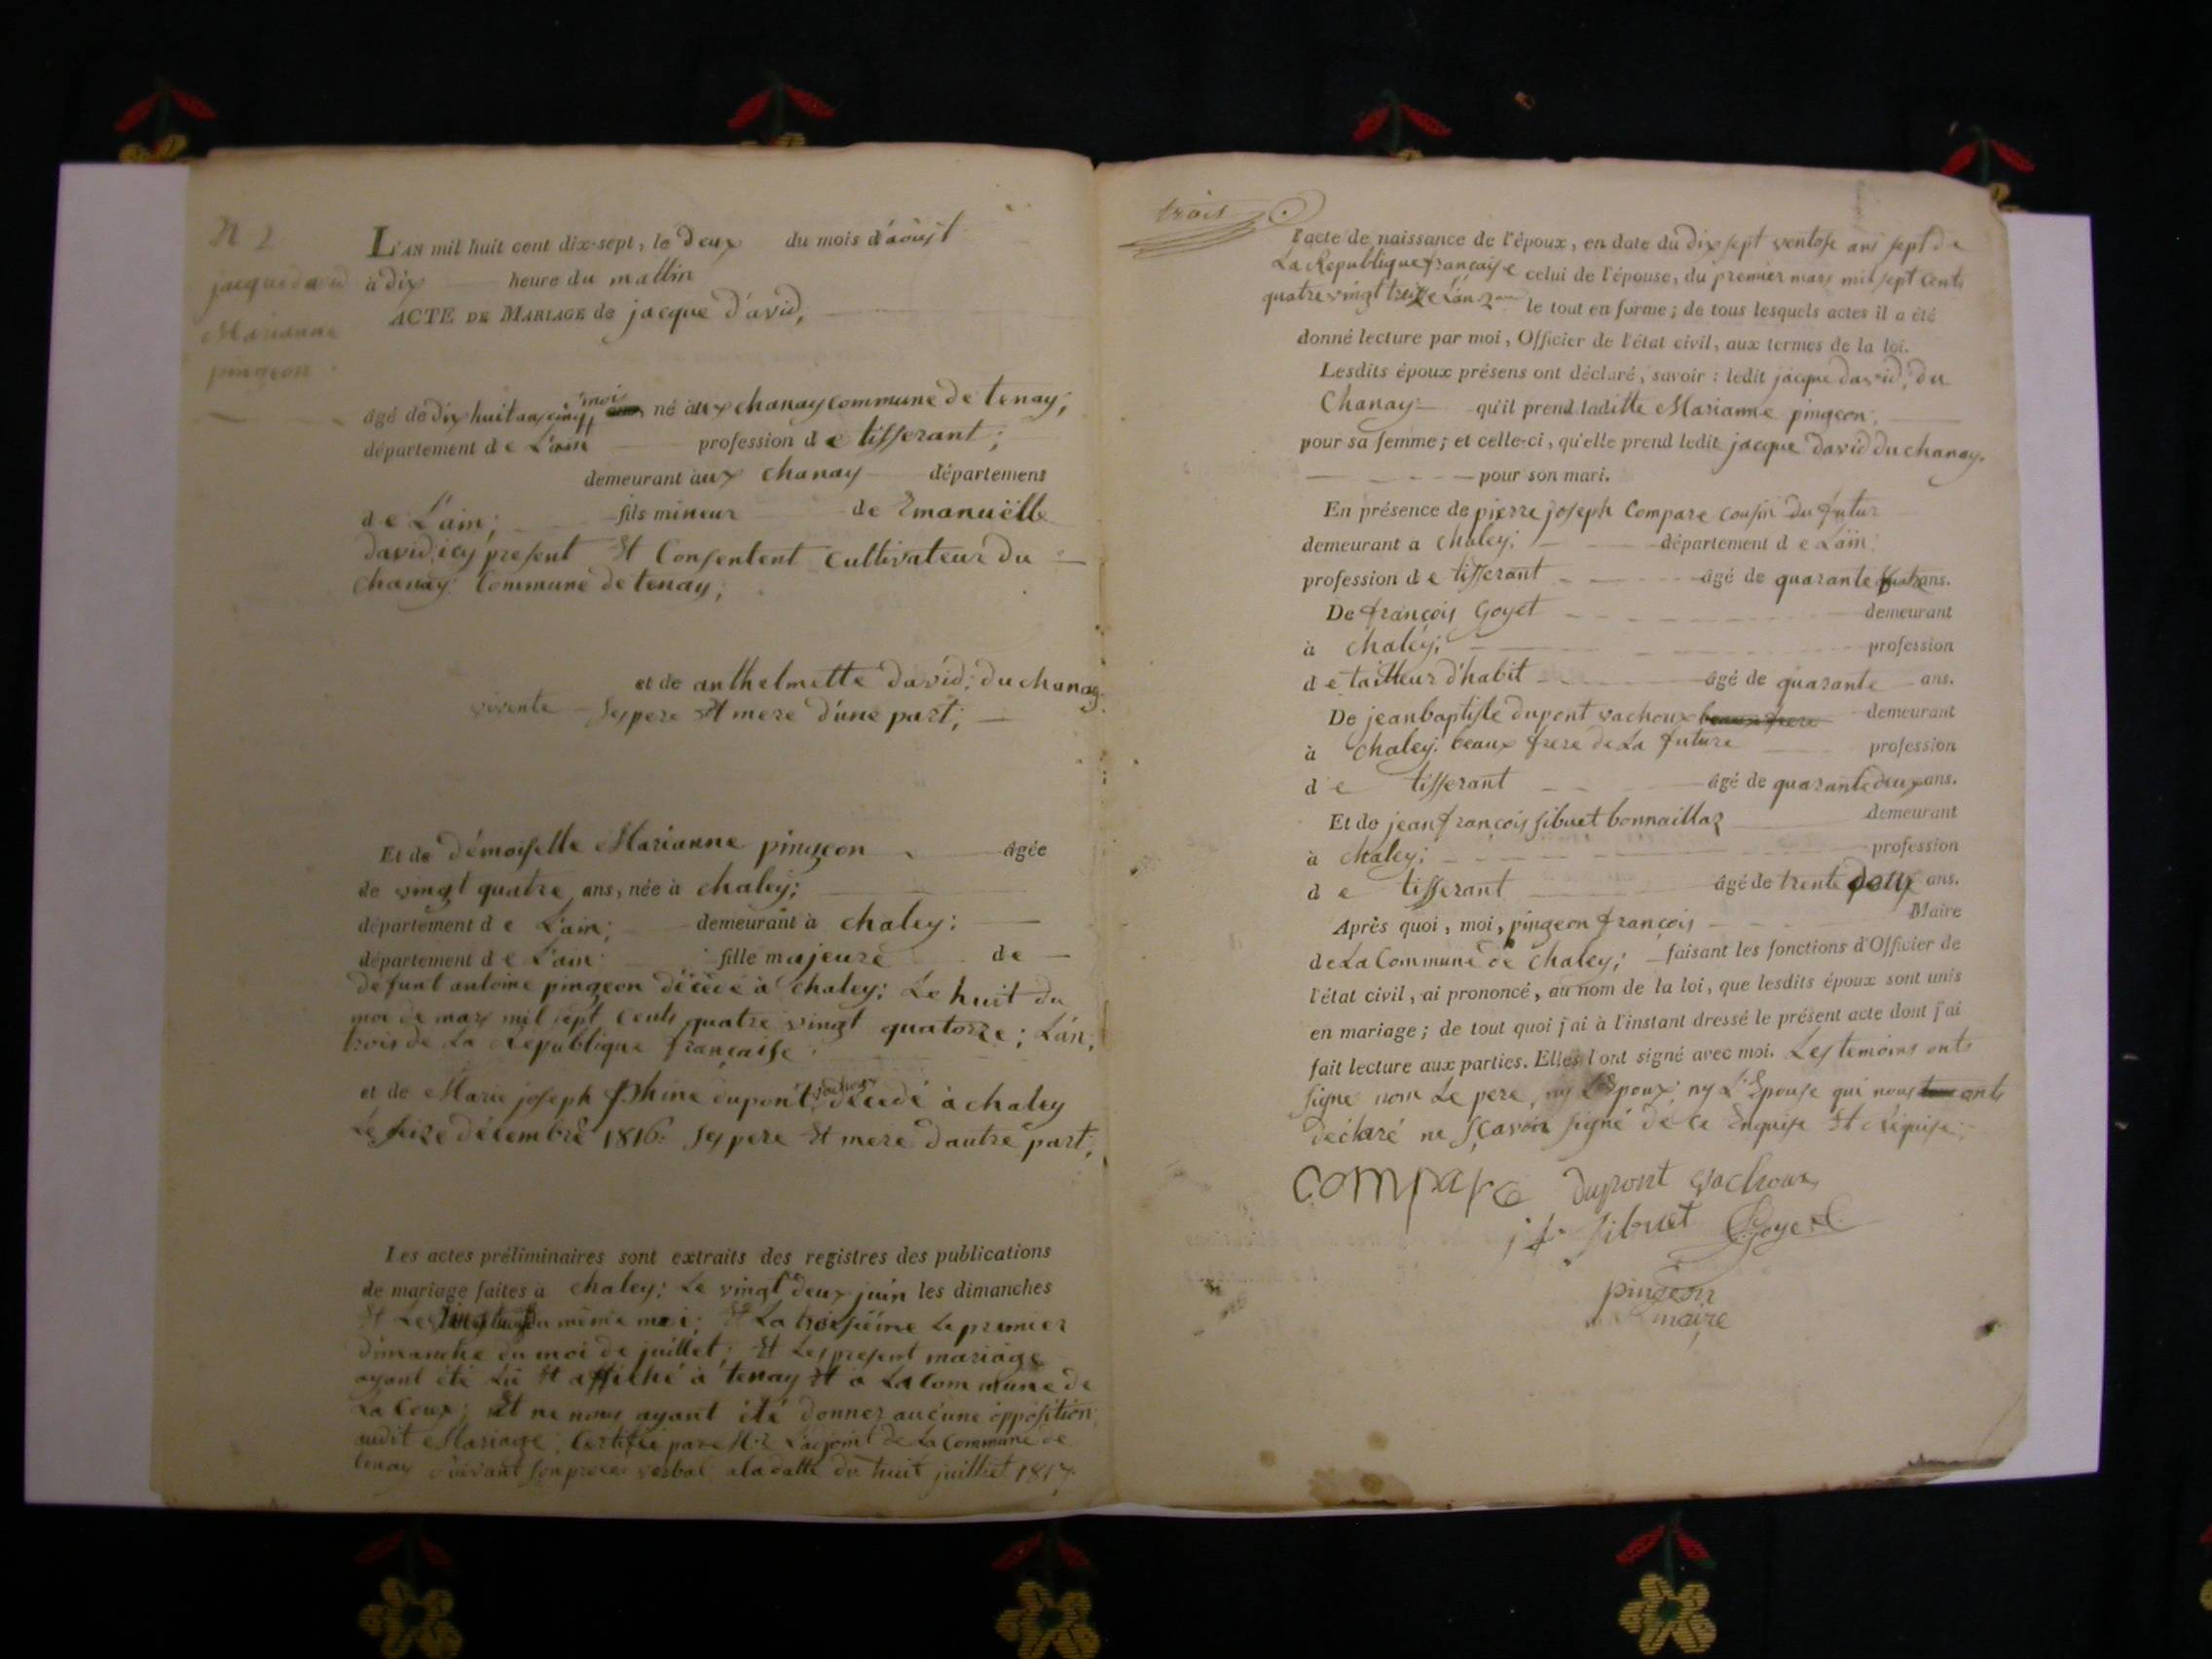 N 2
jacque david
Marianne
pingeon
L'AN mil huit cent dix-sept, le deux du mois d'août
à dix heure du mattin
ACTE DE MARIAGE de jacque david,
mois
âgé de dix huit ans cinq né aux chanay commune de tenay;
département de L'ain profession de tisserant;
demeurant aux chanay département
de L'ain; fils mineur de Emanuëlle
david, icy present Et Consentent cultivateur du
chanay Commune de tenay;
et de anthelmette david; du chanay
vivente ses pere Et mere d'une part;
Et de démoiselle Marianne pingeon âgée
de vingt quatre ans, née à chaley;
département de L'ain; demeurant à chaley;
département de L'ain fille majeure de
defunt antoine pingeon décédé à chaley; Le huit du
moi de mars mil sept cents quatre vingt quatorze; L'an,
trois de La Republique française
et de Marie joseph dupont vachoux décédé à chaley
Le seize décembre 1816. ses pere Et mere d'autre part;
Les actes préliminaires sont extraits des registres des publications
de mariage faites à chaley; Le vingt deux juin les dimanches
Et Le du même moi; Et La troisième Le premier
dimanche du moi de juillet; Et Les present mariage
ayant été Lu Et affiché à tenay Et a La commune de
La Coux; Et ne nous ayant été donner aucune opposition
audit Mariage; Certifié par Mr L'adjoint de La Commune de
tenay suivant son proces verbal a la datte du huit juillet 1817
trois
l'acte de naissance de l'époux, en date du dix sept ventose ans sept de
La Republique française celui de l'épouse, du premier mars mil sept cents
quatre vingt treize L'an 2me le tout en forme; de tous lesquels actes il a été
donné lecture par moi, Officier de l'état civil, aux termes de la loi.
Lesdits époux présens ont déclaré, savoir: ledit jacque david, du
Chanay qu'il prend laditte Marianne pingeon
pour sa femme; et celle-ci, qu'elle prend ledit jacque david du chanay.
pour son mari.
En présence de pierre joseph Compare cousin du futur
demeurant a chaley; département de L'ain;
profession de tisserant âgé de quarante quatre ans.
De françois Goyet demeurant
à chaley; profession
de tailleur d'habit âgé de quarante ans.
De jean baptiste dupont vachoux beaux frere demeurant
à chaley; beaux frere de La future profession
de tisserant âgé de quarante deux ans.
Et de jean françois sibuet bonnaillaz demeurant
à chaley; profession
de tisserant âgé de trente deux ans.
Après quoi, moi, pingeon françois Maire
de La Commune de chaley; faisant les fonctions d'Officier de
l'état civil, ai prononcé, au nom de la loi, que lesdits époux sont unis
en mariage; de tout quoi j'ai à l'instant dressé le présent acte dont j'ai
fait lecture aux parties. Elles l'ont signé avec moi. Les temoins onts
signe nom Le pere, ny L'Epoux; ny L'Epouse qui nous onts
déclaré ne sçavoir signé de ce Enquise Et Réquise;
compare dupont vachoux
j f sibuet Goyet
pingeon
maire